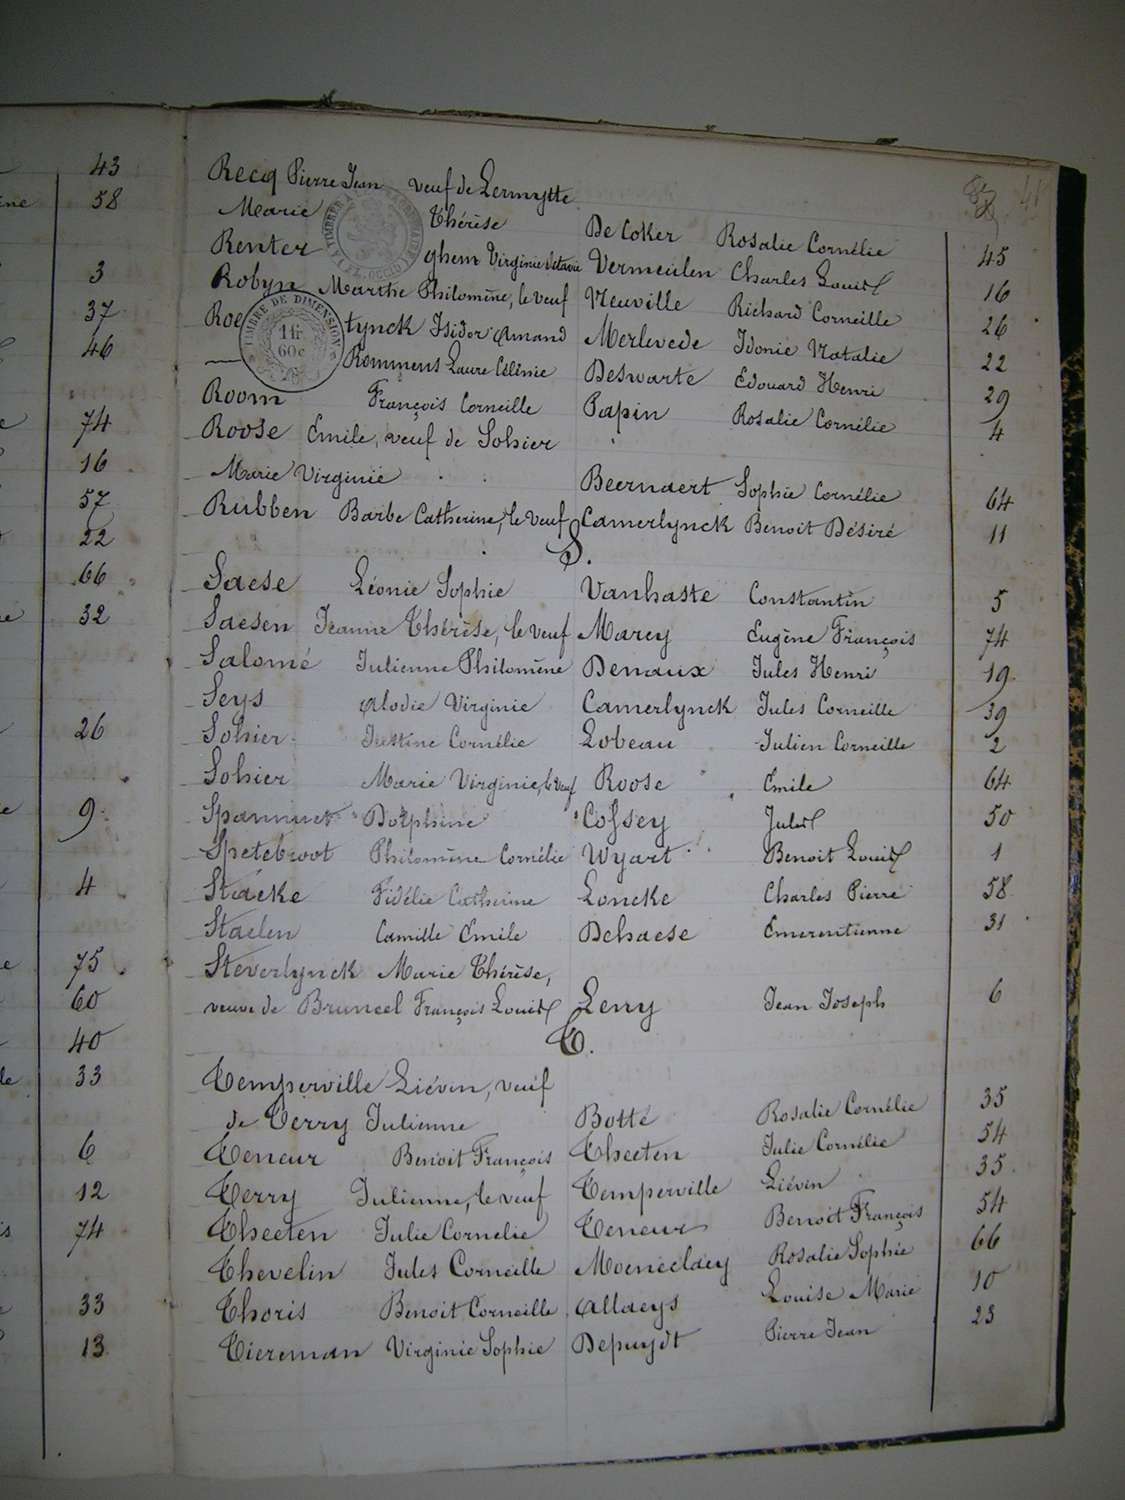 43
58
3
37
46
74
16
57
22
66
32
26
9
4
75
60
40
33
6
12
74
33
13
Recq Pierre Jean veuf de Lermytte
Marie Thérèse De Coker Rosalie Cornélie 45
Renterghem Virginie Octavie Vermeulen Charles Louis 16
Robyn Marthe Philomène, le veuf Neuville Richard Corneille 26
Roetynck Isidor Amand Merlevede Idonie Natalie 22
— Rommens Laure Célinie Deswarte Edouard Henri 29
Room François Corneille Papin Rosalie Cornélie 4
Roose Emile, veuf de Sohier
Marie Virginie Beernaert Sophie Cornélie 64
Rubben Barbe Catherine, le veuf Camerlynck Benoit Désiré 11
S.
Saese Léonie Sophie Vanhaste Constantin 5
Saesen Jeanne Thérèse, le veuf Marcy Eugène François 74
Salomé Julienne Philomène Denaux Jules Henri 19
Seys Alodie Virginie Camerlynck Jules Corneille 39
Sohier Justine Cornélie Lobeau Julien Corneille 2
Sohier Marie Virginie, le veuf Roose Emile 64
Spannuet Dolphine Cossey Jules 50
Spetebroot Philomène Cornélie Wyart Benoit Louis 1
Stacke Fidélie Catherine Loncke Charles Pierre 58
Staelen Camille Emile Dehaese Emerentienne 31
Steverlynck Marie Thérèse,
veuve de Bruneel François Louis Leny Jean Joseph 6
T.
Temperville Liévin, veuf
de Terry Julienne Botte Rosalie Cornélie 35
Teneur Benoit François Theeten Julie Cornélie 54
Terry Julienne, le veuf Temperville Liévin 35
Theeten Julie Cornelie Teneur Benoit François 54
Thevelin Jules Corneille Moeneclaey Rosalie Sophie 66
Thoris Benoit Corneille Allaeys Louise Marie 10
Tiereman Virginie Sophie Depuydt Pierre Jean 23
TIMBRE DE DIMENSION
1fr
60c